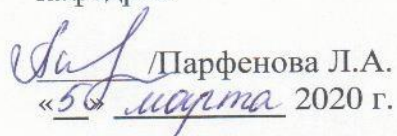 /Парфенова Л.А.
«5» марта 2020 г.